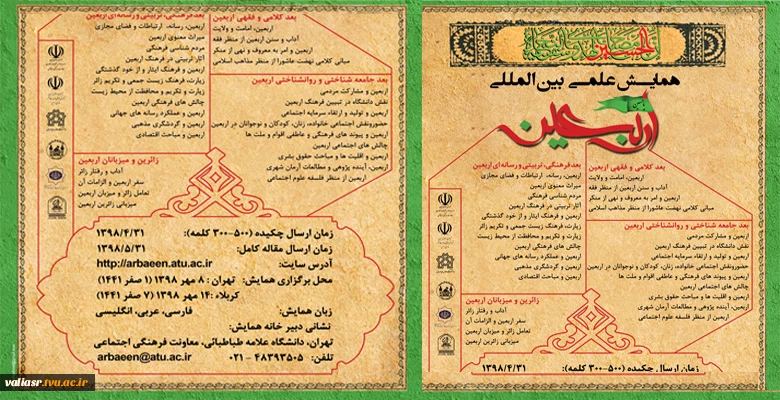 همایش علمی بین المللی
اربعین
بعد کلامی و فقهی اربعین
اربعین، امامت و ولایت
آداب و سنن اربعین از منظر فقه
اربعین و امر به معروف و نهی از منکر
مبانی کلامی نهضت عاشورا از منظر مذاهب اسلامی
بعد جامعه شناختی و روانشناختی اربعین
اربعین و مشارکت مردمی
نقش دانشگاه در تبیین فرهنگ اربعین
اربعین و تولید و ارتقاء سرمایه اجتماعی
حضورونقش اجتماعی خانواده، زنان، کودکان و نوجوانان در اربعین
اربعین و پیوند های فرهنگی و عاطفی اقوام و ملت ها
چالش های اجتماعی اربعین
اربعین و اقلیت ها و مباحث حقوق بشری
اربعین، آینده پژوهی و مطالعات آرمان شهری
اربعین از منظر فلسفه علوم اجتماعی
بعدفرهنگی، تربیتی و رسانه ای اربعین
اربعین، رسانه، ارتباطات و فضای مجازی
میراث معنوی اربعین
مردم شناسی فرهنگی
آثار تربیتی در فرهنگ اربعین
اربعین و فرهنگ ایثار و از خود گذشتگی
زیارت، فرهنگ زیست جمعی و تکریم زائر
زیارت و تکریم و محافظت از محیط زیست
چالش های فرهنگی اربعین
اربعین و عملکرد رسانه های جهانی
اربعین و گردشگری مذهبی
اربعین و مباحث اقتصادی
زائرین و میزبانان اربعین
آداب و رفتار زائر
سفر اربعین و الزامات آن
تعامل زائر و میزبان اربعین
میزبانی زائرین اربعین
زمان ارسال چکیده (۵۰۰-۳۰۰ کلمه): ۱۳۹۸/۴/۳۱
بعد کلامی و فقهی اربعین
اربعین، امامت و ولایت
آداب و سنن اربعین از منظر فقه
اربعین و امر به معروف و نهی از منکر
مبانی کلامی نهضت عاشورا از منظر مذاهب اسلامی
بعد جامعه شناختی و روانشناختی اربعین
اربعین و مشارکت مردمی
نقش دانشگاه در تبیین فرهنگ اربعین
اربعین و تولید و ارتقاء سرمایه اجتماعی
حضورونقش اجتماعی خانواده، زنان، کودکان و نوجوانان در اربعین
اربعین و پیوند های فرهنگی و عاطفی اقوام و ملت ها
چالش های اجتماعی اربعین
اربعین و اقلیت ها و مباحث حقوق بشری
اربعین، آینده پژوهی و مطالعات آرمان شهری
اربعین از منظر فلسفه علوم اجتماعی
بعدفرهنگی، تربیتی و رسانه ای اربعین
اربعین، رسانه، ارتباطات و فضای مجازی
میراث معنوی اربعین
مردم شناسی فرهنگی
آثار تربیتی در فرهنگ اربعین
اربعین و فرهنگ ایثار و از خود گذشتگی
زیارت، فرهنگ زیست جمعی و تکریم زائر
زیارت و تکریم و محافظت از محیط زیست
چالش های فرهنگی اربعین
اربعین و عملکرد رسانه های جهانی
اربعین و گردشگری مذهبی
اربعین و مباحث اقتصادی
زائرین و میزبانان اربعین
آداب و رفتار زائر
سفر اربعین و الزامات آن
تعامل زائر و میزبان اربعین
میزبانی زائرین اربعین
زمان ارسال چکیده (۵۰۰-۳۰۰ کلمه): ۱۳۹۸/۴/۳۱
زمان ارسال مقاله کامل: ۱۳۹۸/۵/۳۱
آدرس سایت: http://arbaeen.atu.ac.ir
محل برگزاری همایش: تهران : ۸ مهر ۱۳۹۸ (۱ صفر ۱۴۴۱)
کربلاء :۱۴ مهر ۱۳۹۸ (۷ صفر ۱۴۴۱)
زبان همایش: فارسی، عربی، انگلیسی
نشانی دبیر خانه همایش:
تهران، دانشگاه علامه طباطبائی، معاونت فرهنگی اجتماعی
تلفن: ۴۸۳۹۳۵۰۵ - ۰۲۱ arbaeen@atu.ac.ir
valiasr.tvu.ac.ir